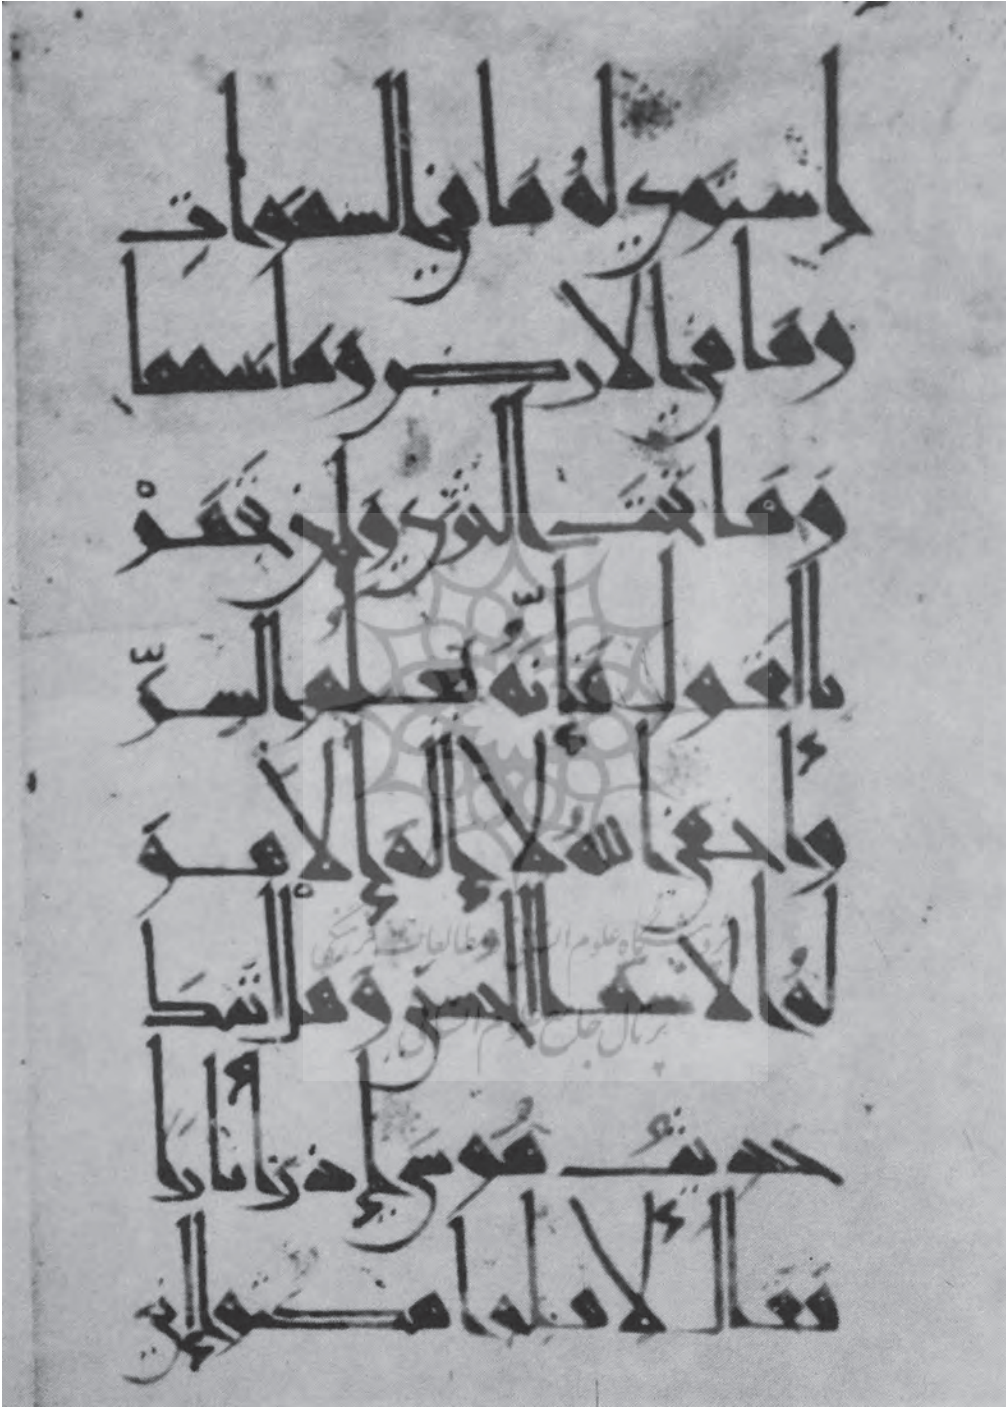 استوي له ما في السموات
وما في الارض وما بينهما
وما تحت الثري وان تجهر
بالقول فانه يعلم السر
وأخفي الله لا إله إلا هو
له الاسماء الحسني وهل اتيك
حديث موسي إذ رأا نارا
فقال لأهله امكثوا إني
پژوهشگاه علوم انسانی و مطالعات فرهنگی
پرتال جامع علوم انسانی